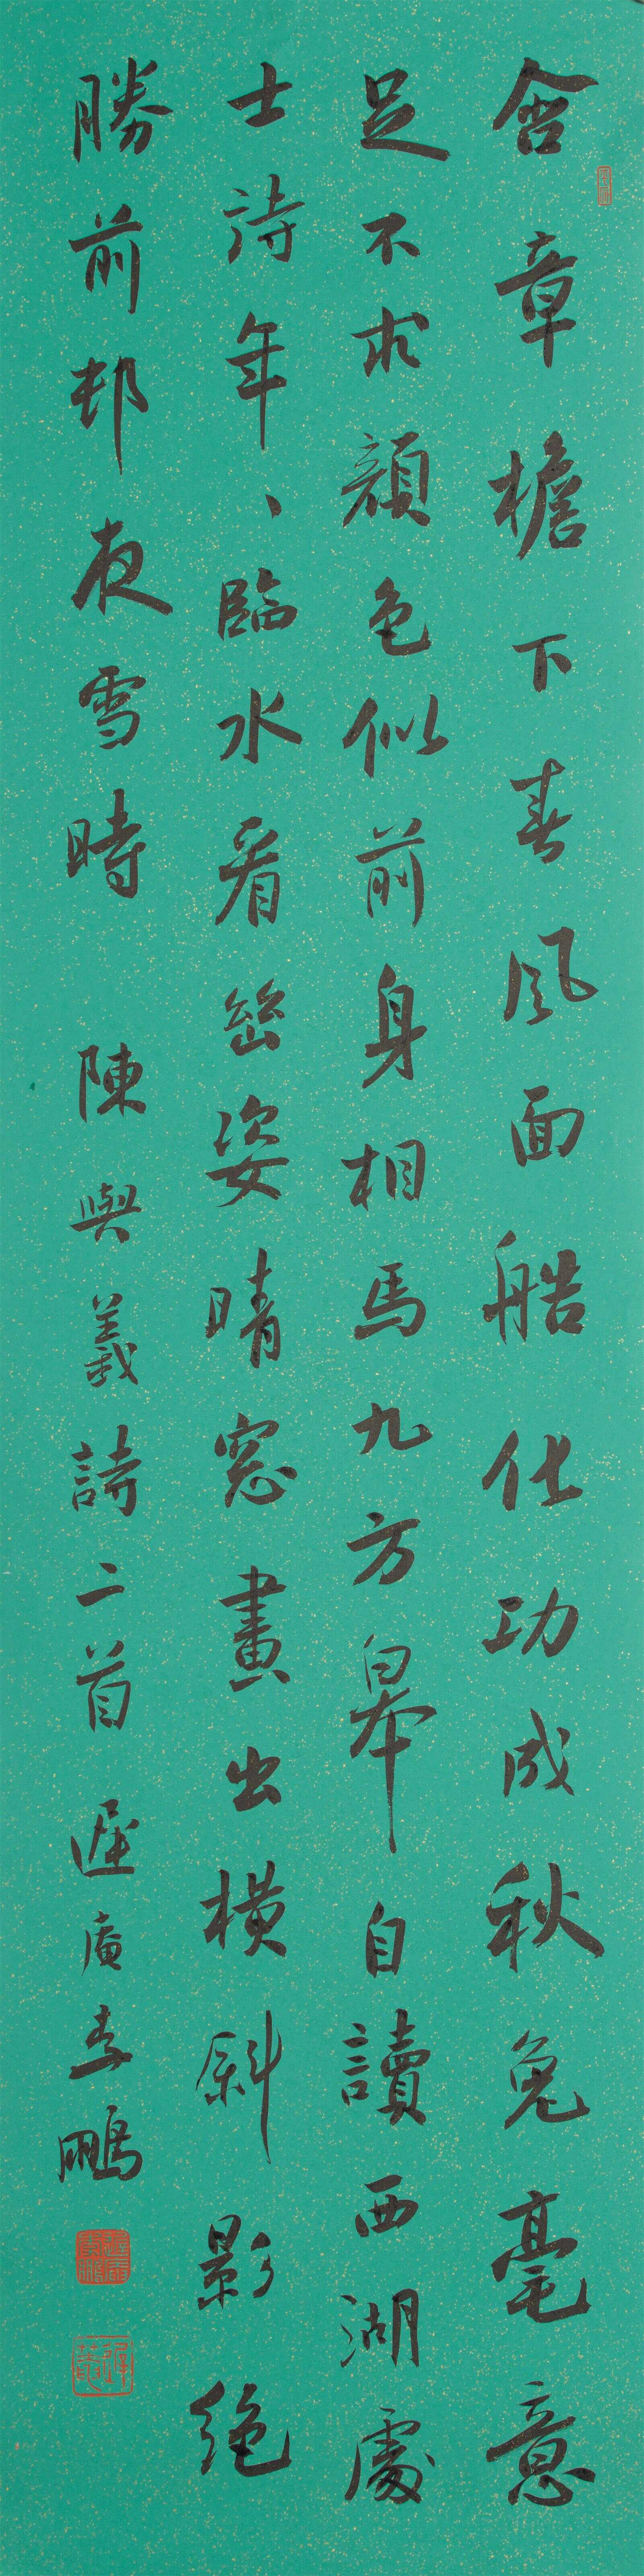 含章檐下春風面艁化功成秋兔毫意
足不求顏色似前身相馬九方皐自讀西湖處
士詩年、臨水看幽姿晴窓畫出橫斜影絕
勝前邨夜雪時 陳與義詩二首 遲庵李鵬